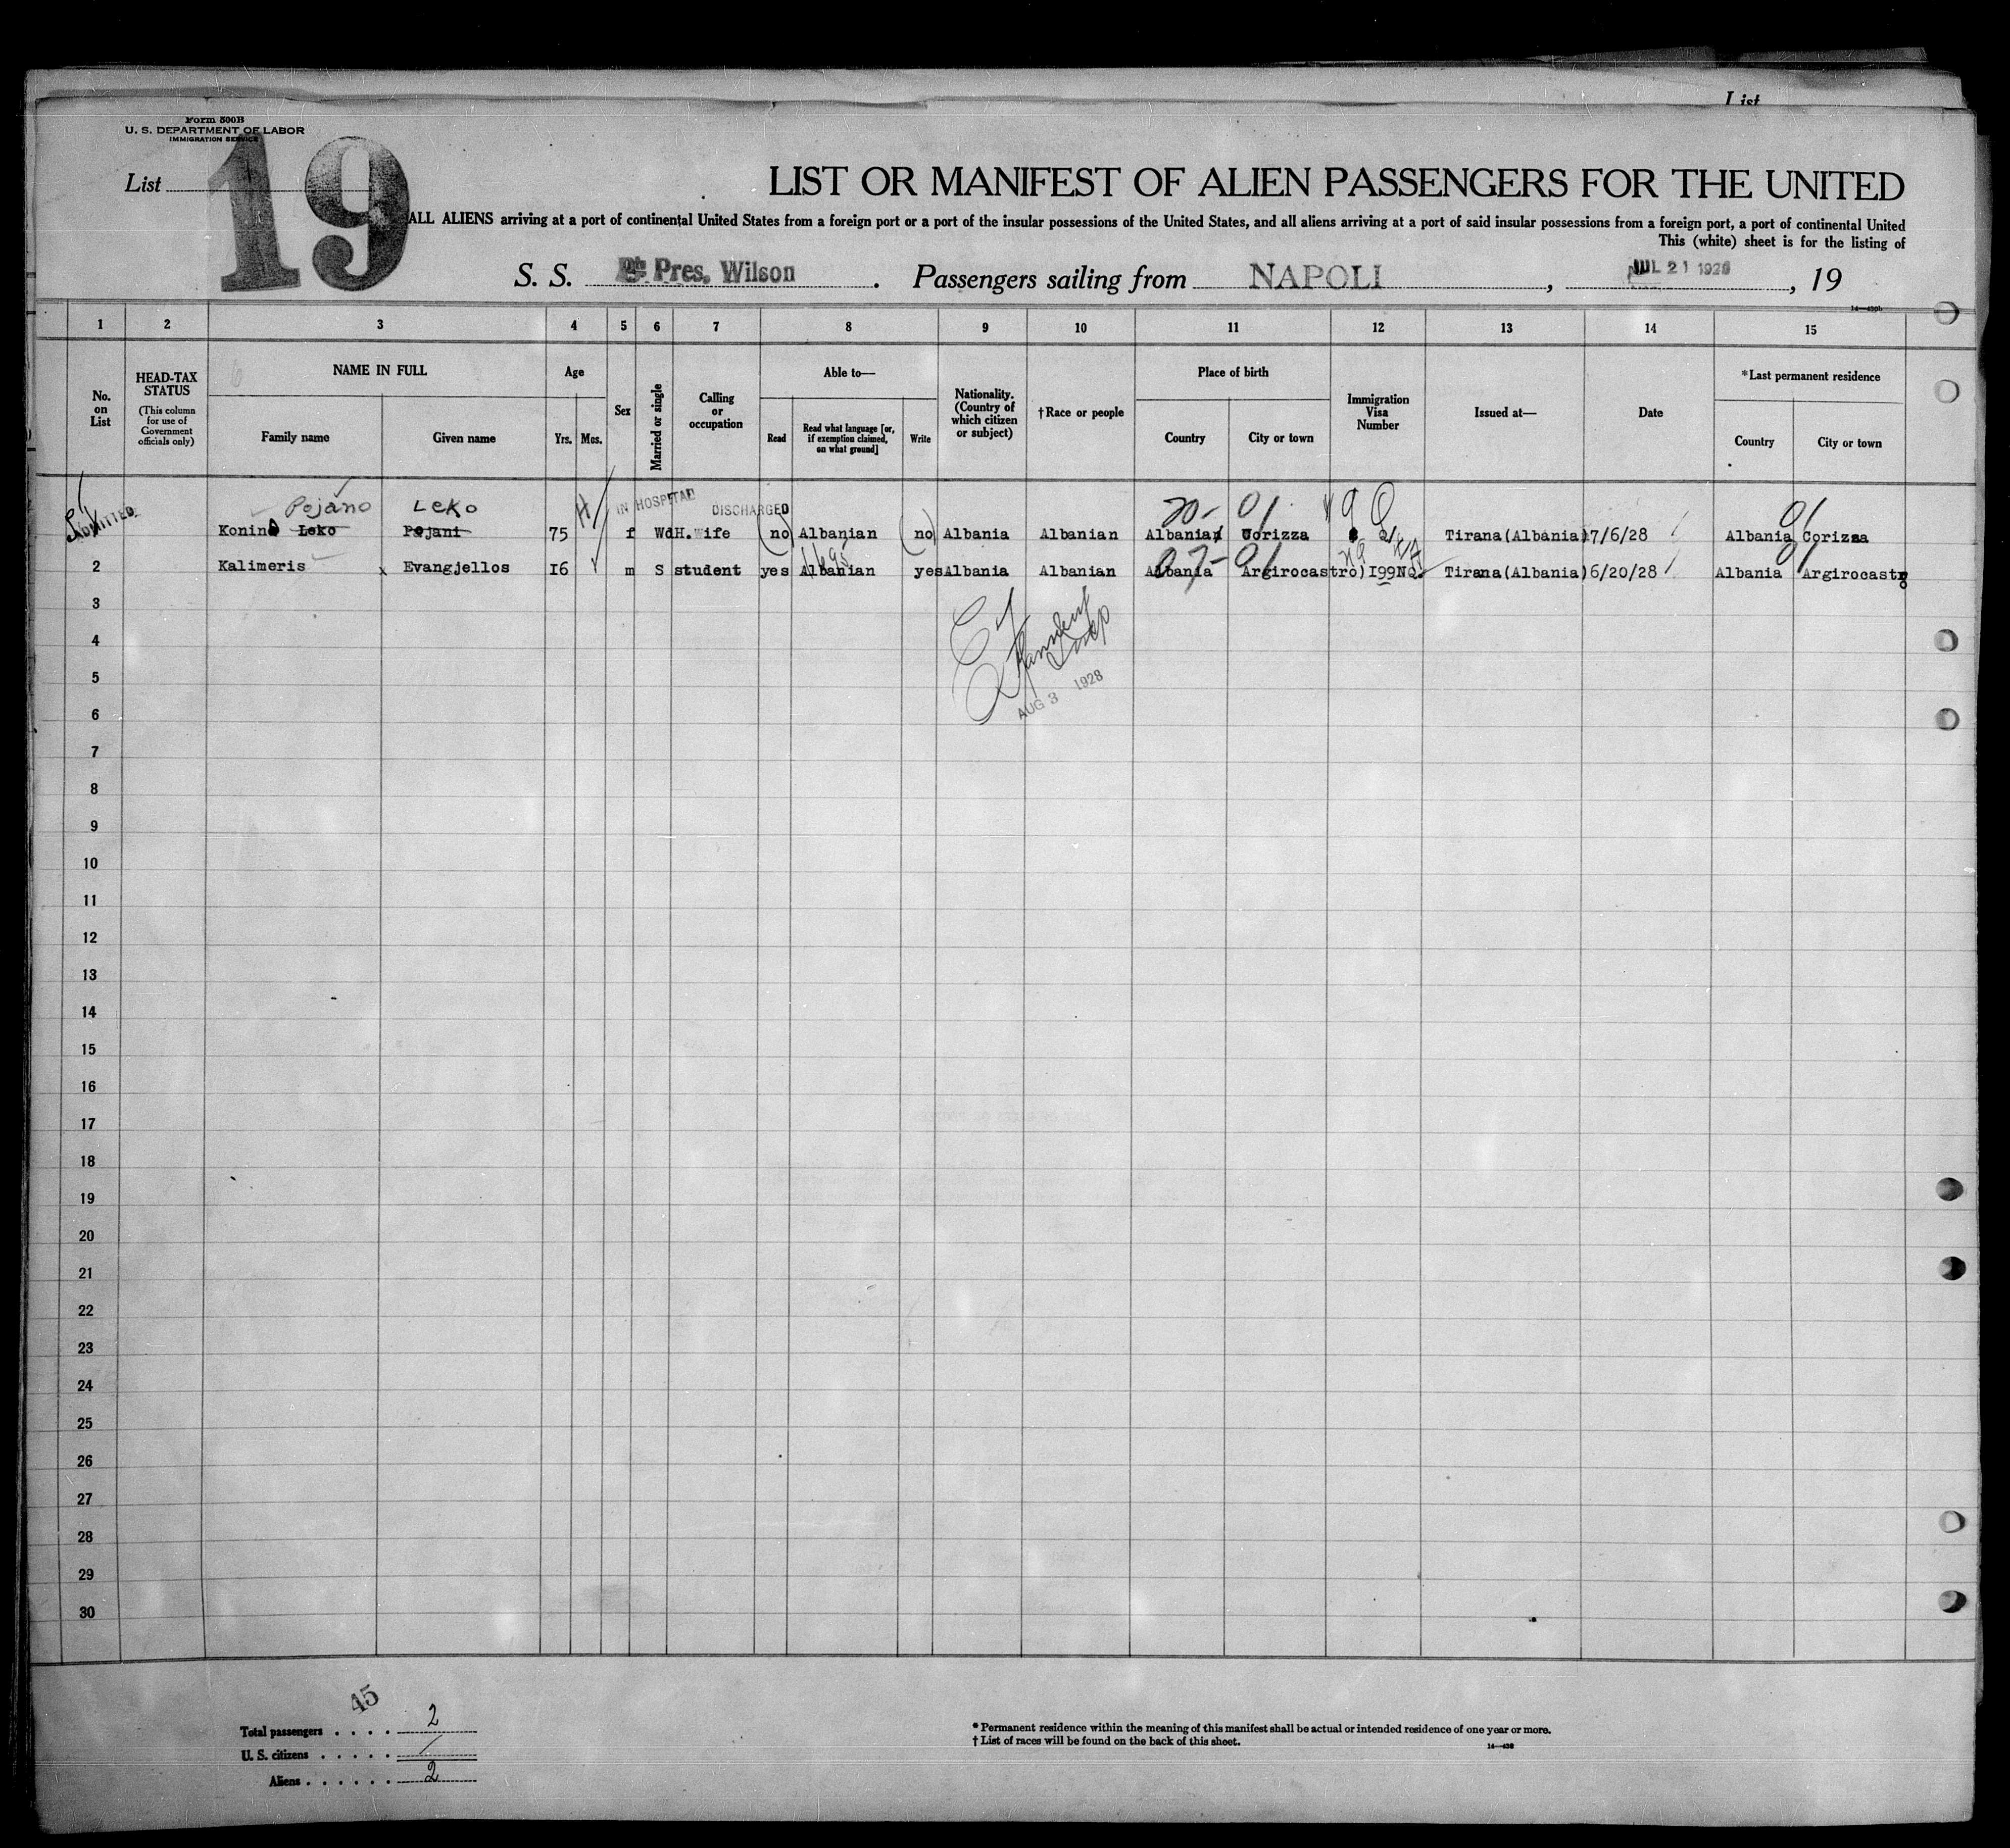 List
Form 500B
U. S. DEPARTMENT OF LABOR
IMMIGRATION SERVICE
19
List
LIST OR MANIFEST OF ALIEN PASSENGERS FOR THE UNITED
ALL ALIENS arriving at a port of continental United States from a foreign port or a port of the insular possessions of the United States, and all aliens arriving at a port of said insular possessions from a foreign port, a port of continental United
This (white) sheet is for the listing of
S. S. Pres. Wilson. Passengers sailing from NAPOLI, JUL 21 1928, 19
1 2 3 4 5 6 7 8 9 10 11 12 13 14 15
No. on List
HEAD-TAX STATUS
(This column for use of Government officials only)
NAME IN FULL
Family name
Given name
Age
Yrs.
Mos.
Sex
Married or single
Calling or occupation
Able to—
Read
Read what language [or, if exemption claimed, on what ground]
Write
Nationality. (Country of which citizen or subject)
†Race or people
Place of birth
Country
City or town
Immigration Visa Number
Issued at—
Date
*Last permanent residence
Country
City or town
ADMITTED
Pojano Leko
IN HOSPITAL
DISCHARGED
20- 01
01
Leko Pojani 75 f Wd H.wife no Albanian no Albania Albanian Albania Corizza Tirana(Albania) 7/6/28 Albania Corizza
07- 01
01
2 Kalimeris x Evangjellos 16 m S student yes Albanian yes Albania Albanian Albania Argirocastro) I99NQ. Tirana(Albania) 6/20/28 Albania Argirocastro
3
4
5
AUG 3 1928
6
7
8
9
10
11
12
13
14
15
16
17
18
19
20
21
22
23
24
25
26
27
28
29
30
45
Total passengers . . . . 2
U. S. citizens . . . . . /
Aliens . . . . . . 2
* Permanent residence within the meaning of this manifest shall be actual or intended residence of one year or more.
† List of races will be found on the back of this sheet.